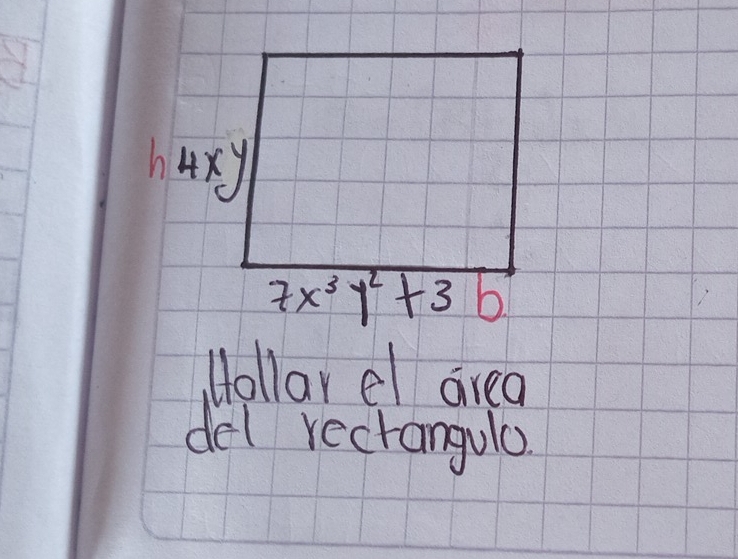 h 4xy
7x³y² + 3 b.
Hallar el área
del rectangulo.